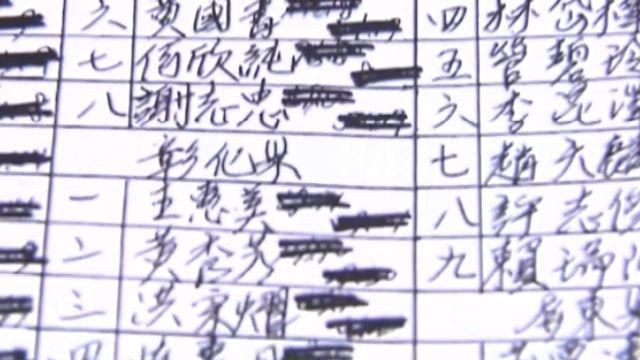 六 黃國書
七 何欣純
八 謝志忠
彰化縣
一 王惠美
二 黃秀芳
三 洪宗熠
四
四 林岱樺
五 管碧玲
六 李昆澤
七 趙天麟
八 許志傑
九 賴瑞隆
屏東縣